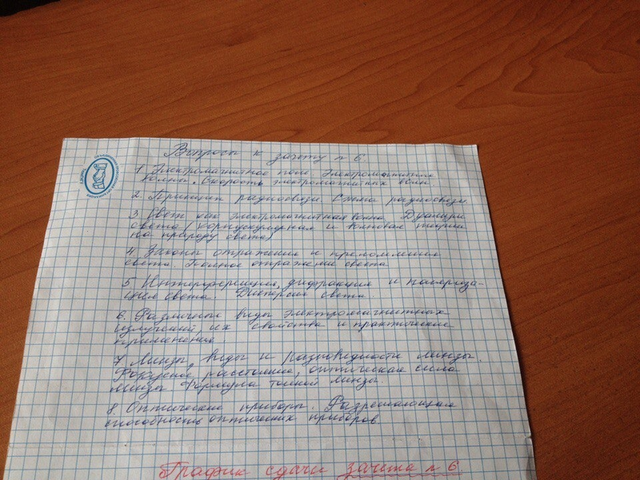 Вопросы к зачету № 6.
1. Электромагнитное поле. Электромагнитные
волны. Скорость электромагнитных волн
2. Принцип радиосвязи. Схема радиосвязи.
3. Свет как электромагнитная волна. Дуализм
света (корпускулярная и волновая теории
на природу света)
4. Законы отражения и преломления
света. Полное отражение света
5. Интерференция, дифракция и поляриза-
ция света. Дисперсия света
6. Различные виды электромагнитных
излучений, их свойства и практические
применения
7. Линзы, виды и разновидности линзы.
Фокусное расстояние, оптическая сила
линзы. Формула тонкой линзы
8. Оптические приборы. Разрешающая
способность оптических приборов
График сдачи зачета № 6.